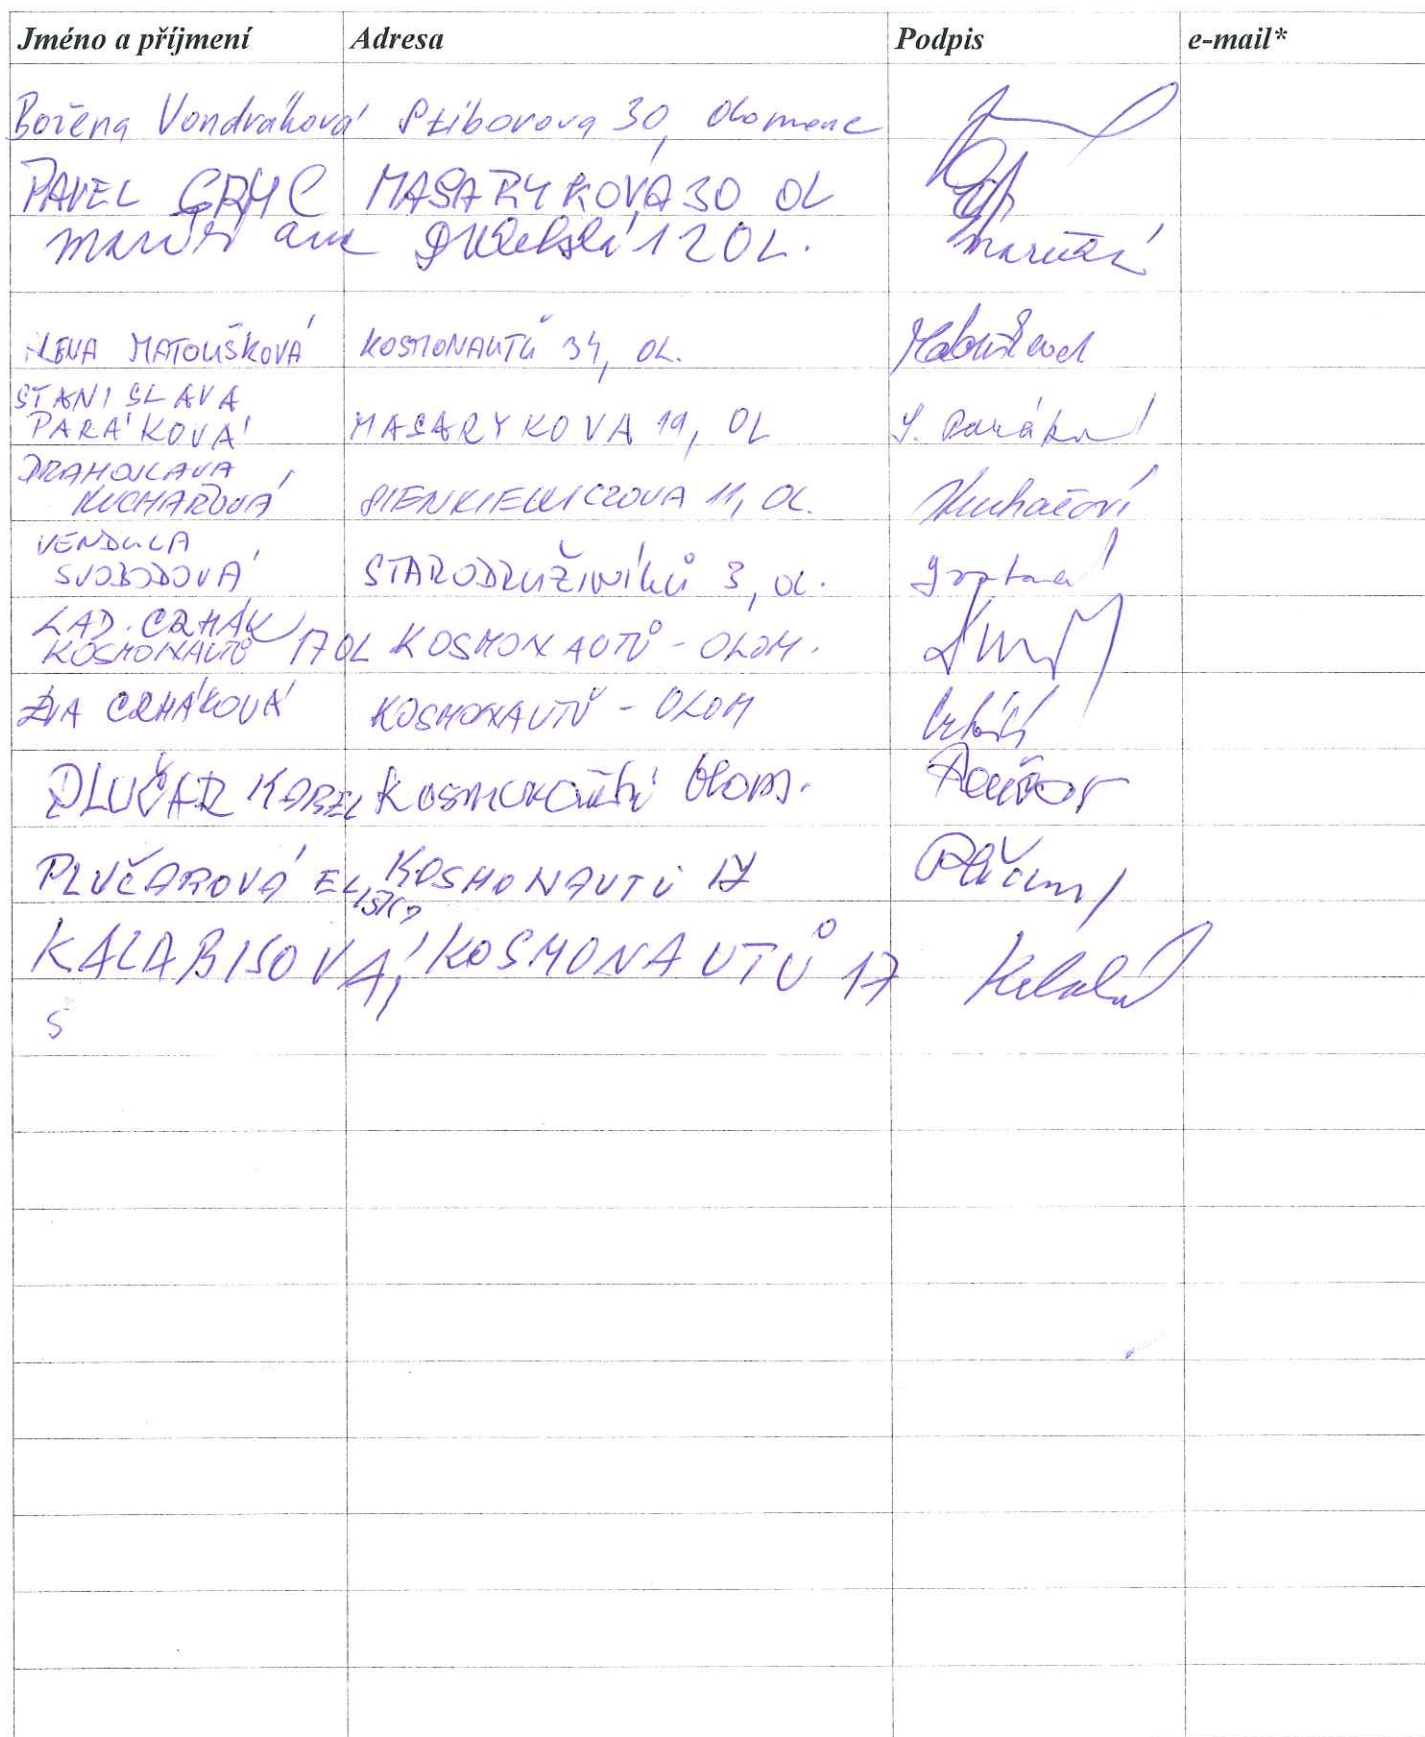 Jméno a příjmení Adresa Podpis e-mail*
Božena Vondráková Stiborova 30, Olomouc
PAVEL GRYC MASARYKOVA 30 OL
12 OL.
ALENA MATOUŠKOVÁ KOSMONAUTŮ 34, OL.
STANISLAVA
PARÁKOVÁ MASARYKOVA 19, OL S. Paráková
DRAHOSLAVA
KUCHAŘOVÁ SIENKIEWICZOVA 11, OL. Kuchařová
VENDULA
SVOBODOVÁ STARODRUŽINÍKŮ 3, OL.
LAD. CRHÁK
KOSMONAUTŮ 17 OL KOSMONAUTŮ - OLOM.
EVA CRHÁKOVÁ KOSMONAUTŮ - OLOM
PLUČAR KAREL KOSMONAUTŮ OLOM.
PLUČAROVÁ KOSMONAUTŮ 17
KALABISOVÁ, KOSMONAUTŮ 17
S